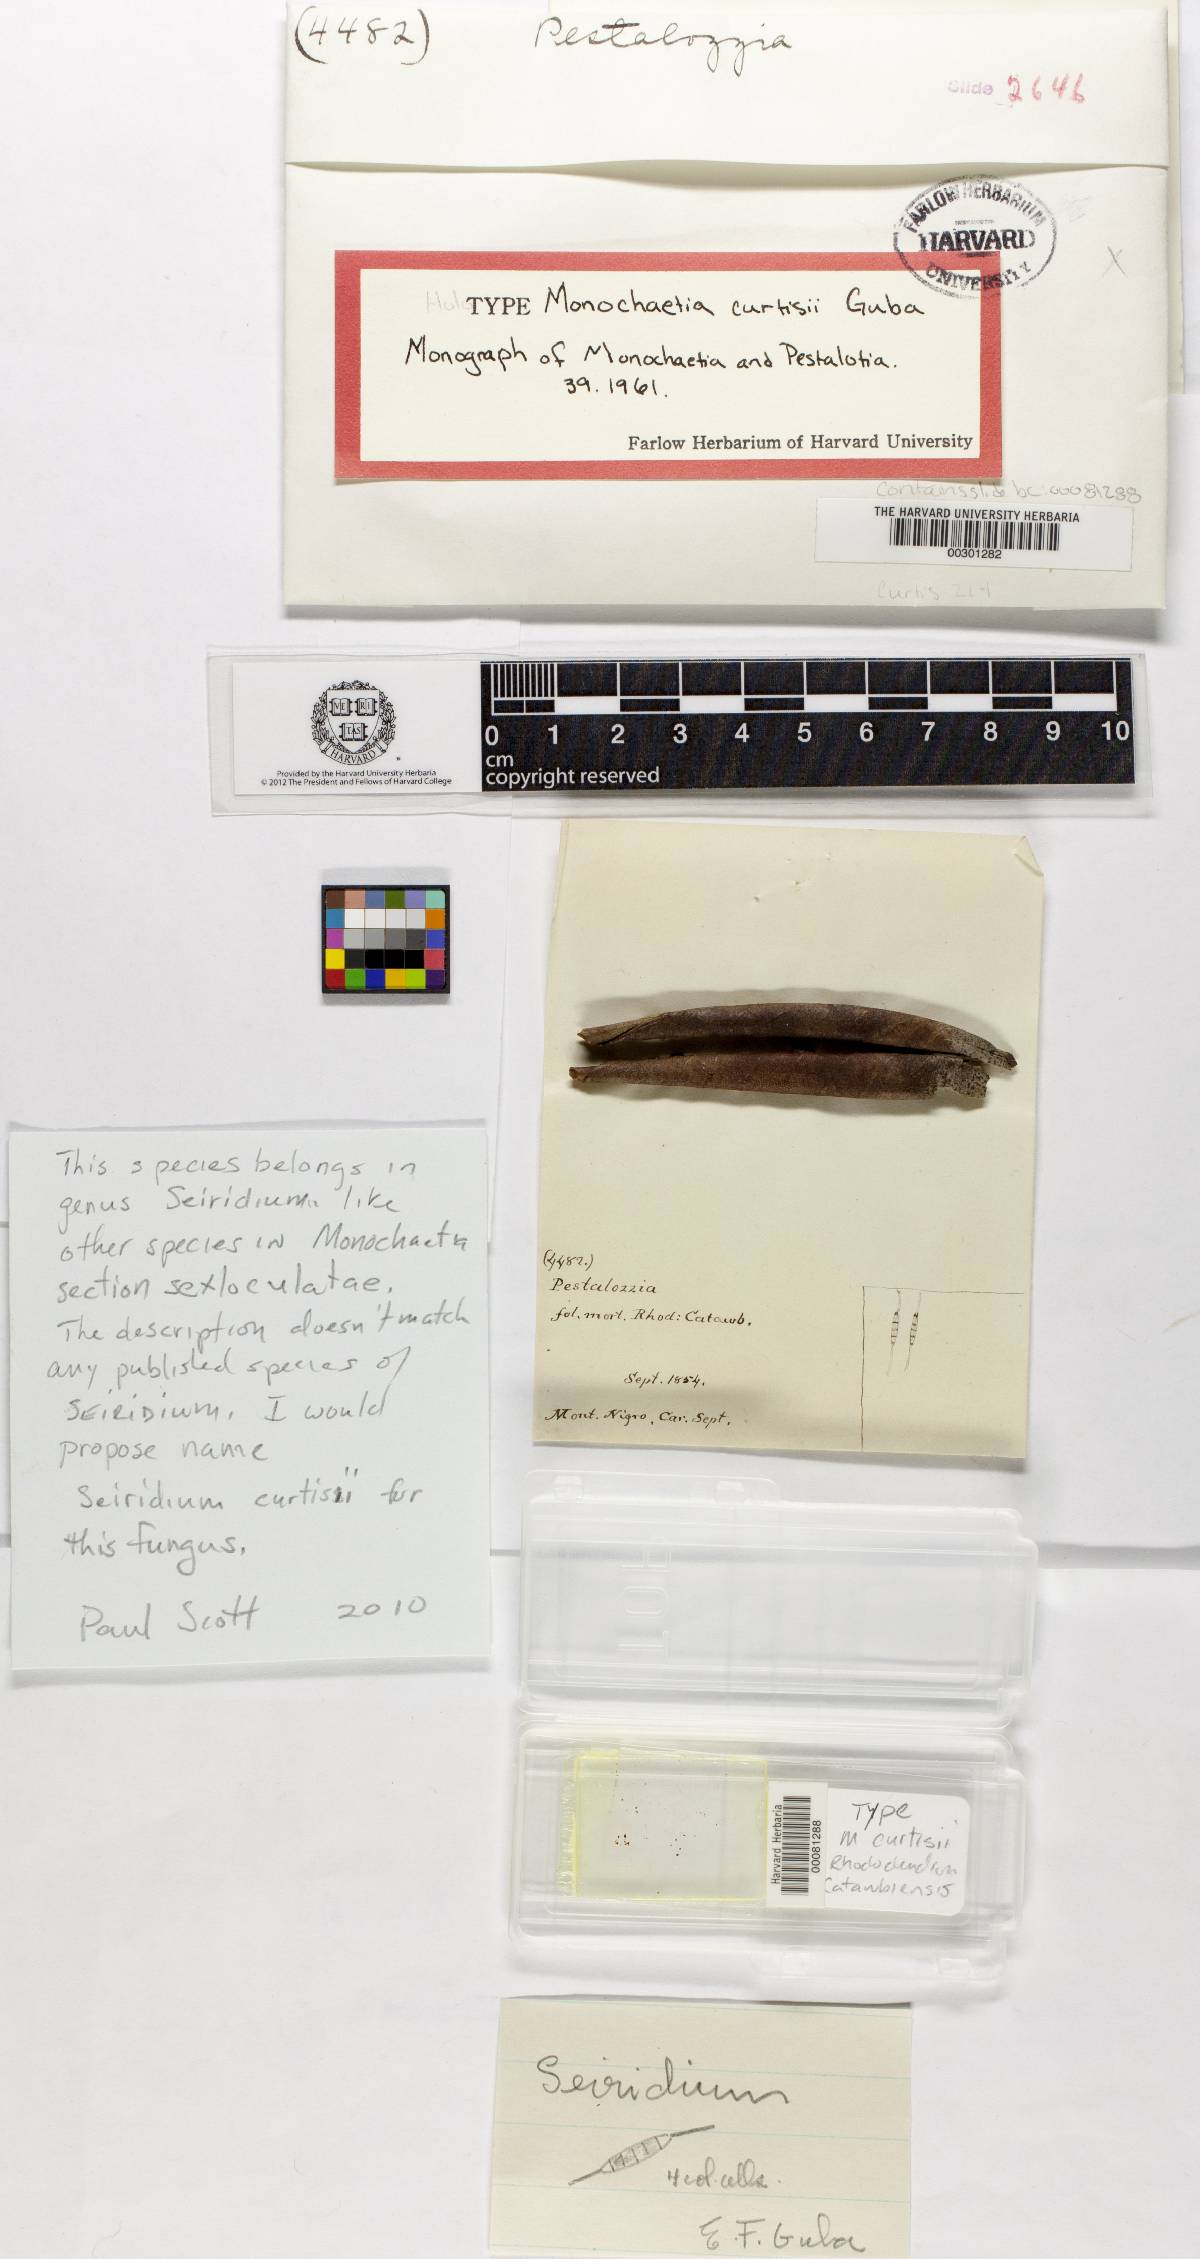 (4482) Pestalozzia
Slide 2646
FARLOW HERBARIUM
HARVARD
UNIVERSITY
X
Holo TYPE Monochaetia curtisii Guba
Monograph of Monochaetia and Pestalotia.
39. 1961.
Farlow Herbarium of Harvard University
contains slide bc:00081288
THE HARVARD UNIVERSITY HERBARIA
00301282
Curtis
VE RI
TAS
HARVARD
Provided by the Harvard University Herbaria
© 2012 The President and Fellows of Harvard College
0 1 2 3 4 5 6 7 8 9 10
cm
copyright reserved
This species belongs in
genus Seiridium like
other species in Monochaetia
section sexloculatae.
The description doesn't match
any published species of
SEIRIDIUM. I would
propose name
Seiridium curtisii for
this fungus.
Paul Scott 2010
(4482.)
Pestalozzia
fol. mort. Rhod: Catawb.
Sept. 1854.
Mont. Nigro, Car. Sept.
Harvard Herbaria
00081288
Type
M curtisii
Rhododendron
Catawbiensis
Seiridium
4 col. cells.
E. F. Guba